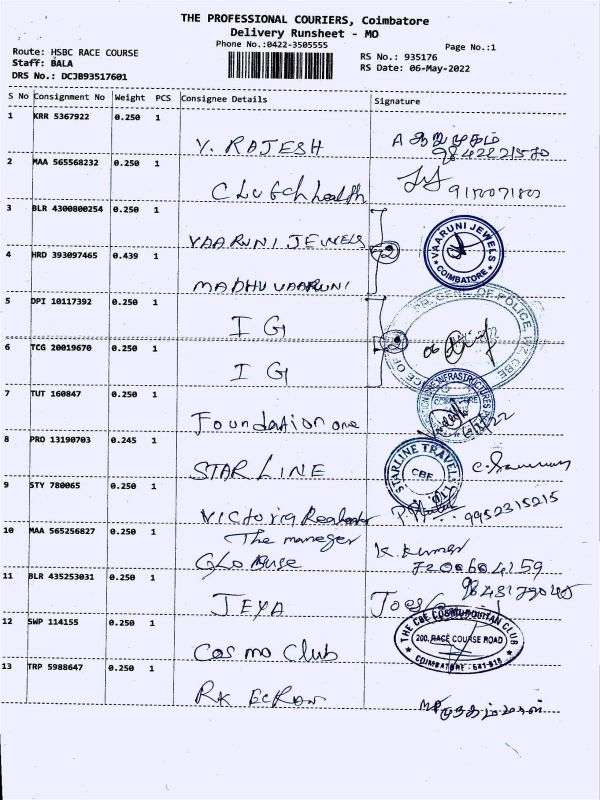 THE PROFESSIONAL COURIERS, Coimbatore
Delivery Runsheet - MO
Phone No.:0422-3505555
Page No.:1
Route: HSBC RACE COURSE
Staff: BALA
DRS No.: DCJB93517601
RS No.: 935176
RS Date: 06-May-2022
S No Consignment No Weight PCS Consignee Details Signature
1 KRR 5367922 0.250 1
Y. RAJESH
A ஆறுமுகம்
2 MAA 565568232 0.250 1
Clutch health
3 BLR 4300800254 0.250 1
VAARUNI JEWELS
2
VAARUNI JEWELS
COIMBATORE
4 HRD 393097465 0.439 1
MADHU VAARUNI
5 DPI 10117392 0.250 1
I G
2
6 TCG 20019670 0.250 1
I G
7 TUT 160847 0.250 1
Foundation one
8 PRO 13190703 0.245 1
STAR LINE
STARLINE TRAVELS
CBE
9 STY 780065 0.250 1
Victoria
9952315215
10 MAA 565256827 0.250 1
The maneger
K Kumar
7200604159
11 BLR 435253031 0.250 1
JEYA
12 SWP 114155 0.250 1
Cosmo Club
THE CBE COSMOPOLITAN CLUB
200, RACE COURSE ROAD
COIMBATORE - 641 018
13 TRP 5988647 0.250 1
RK